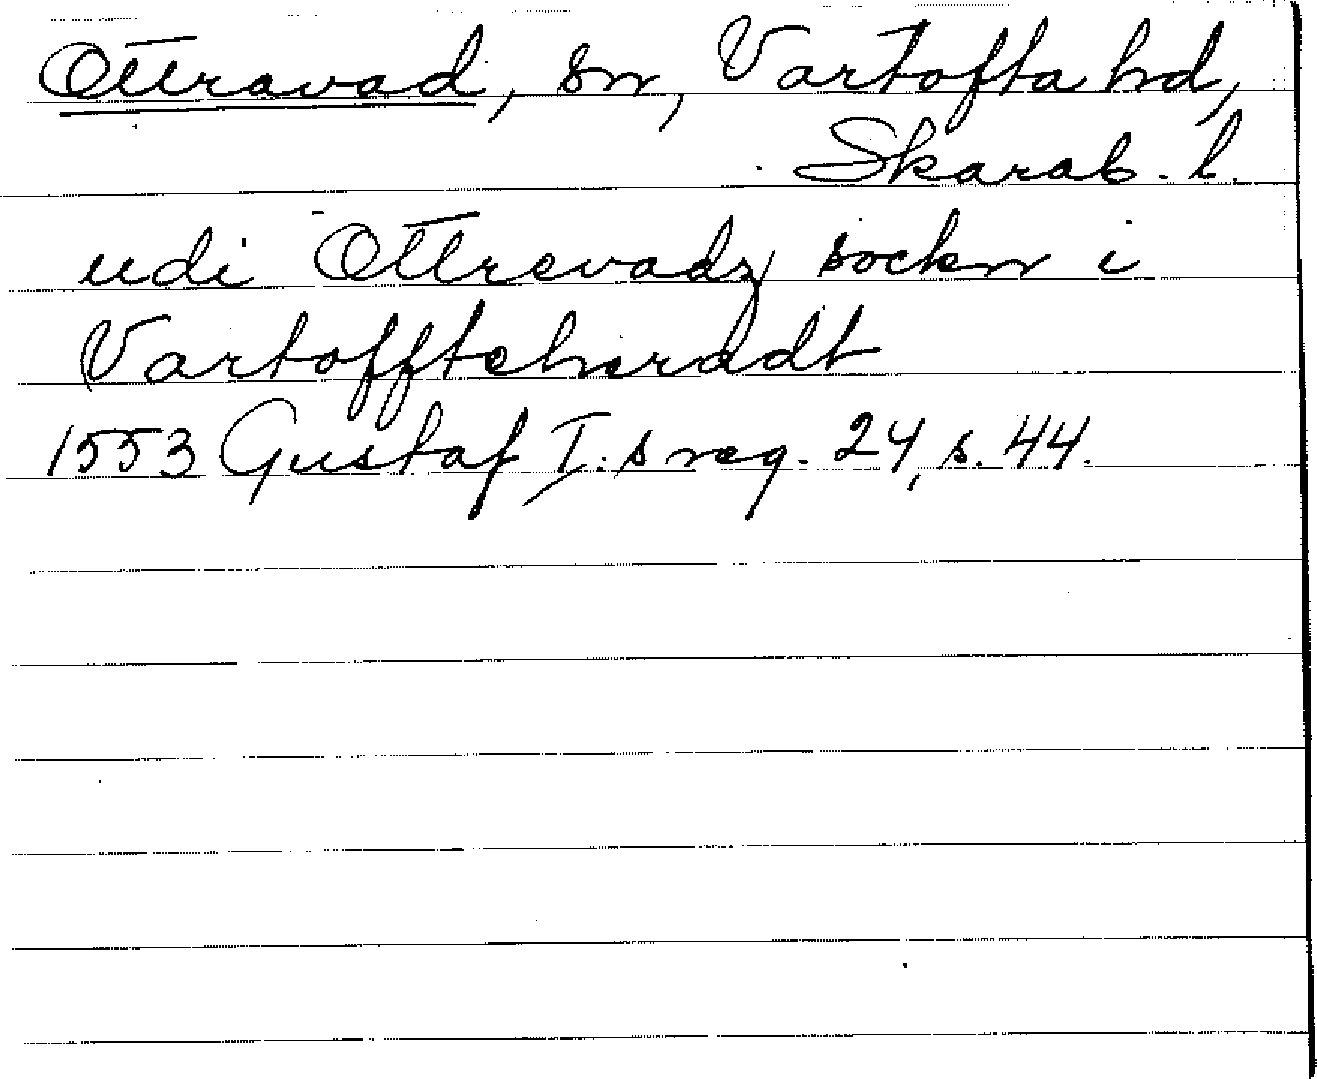 Ottravad, sn, Vartofta hd,
Skarab. l.
udi Ottrevadz sockn i
Vartofftehäraddt
1553 Gustaf I:s reg. 24, s. 44.